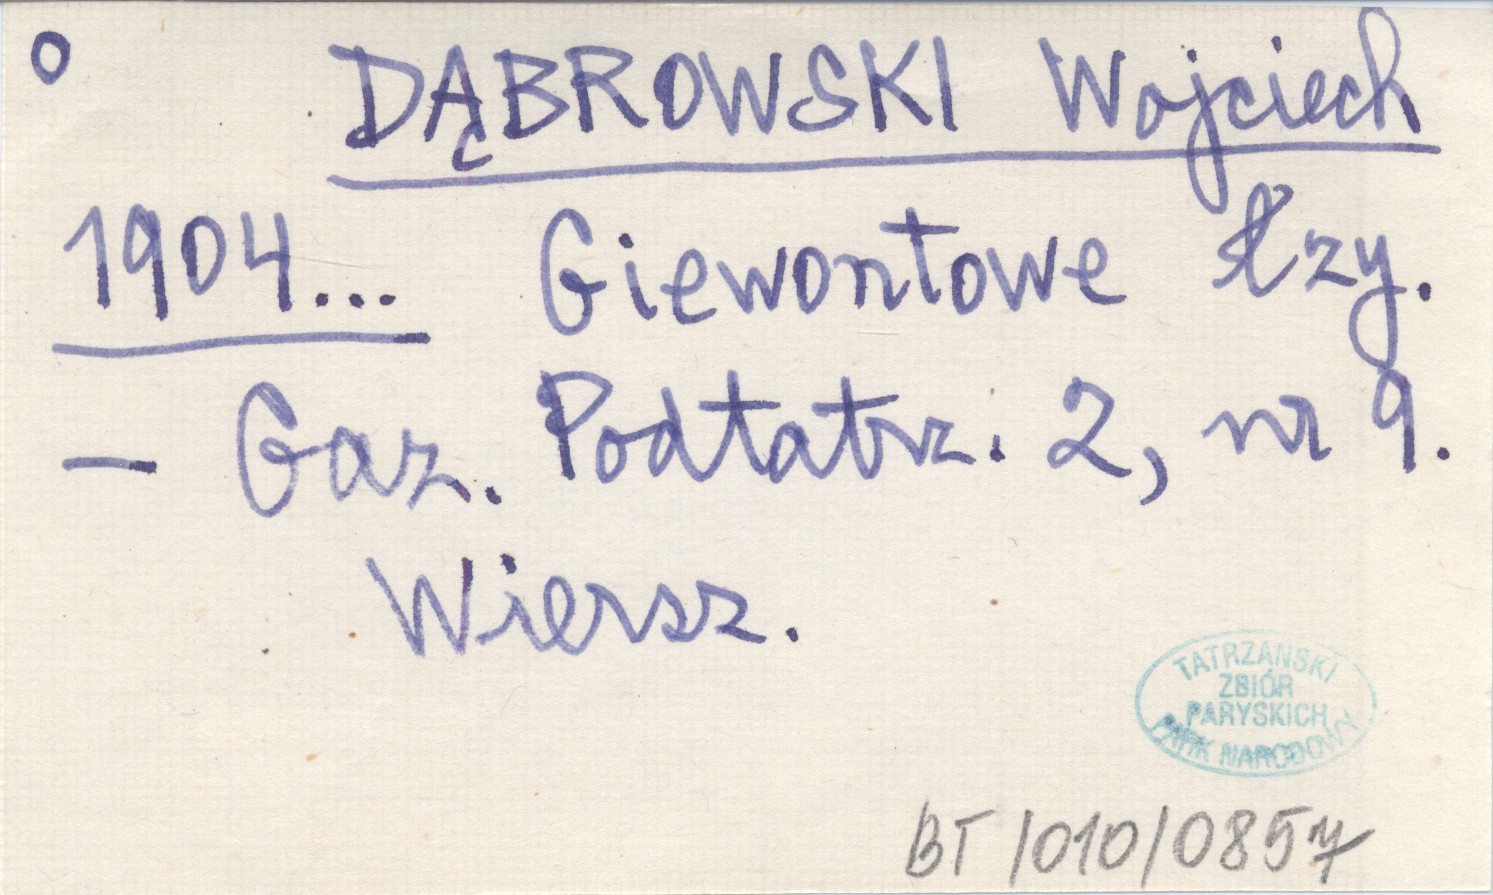 o DĄBROWSKI Wojciech
1904... Giewontowe łzy.
— Gaz. Podtatrz. 2, nr 9.
Wiersz.
TATRZAŃSKI
ZBIÓR
PARYSKICH
PARK NARODOWY
BT/010/0857